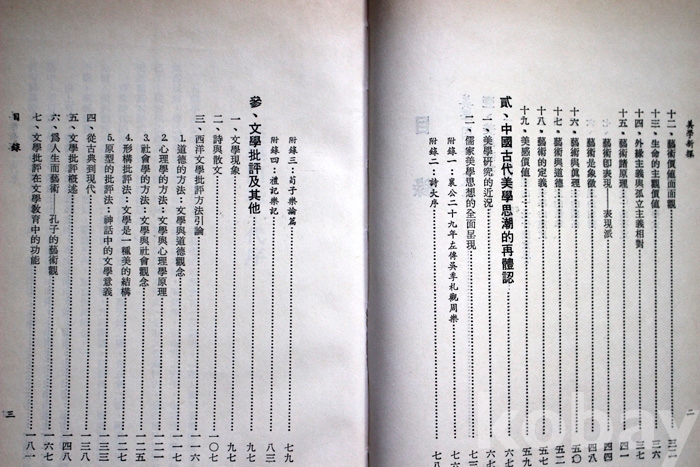 美學新探
十二、藝術價值面面觀
十三、生命的主觀價值
十四、外緣主義與孤立主義相對
十五、藝術諸原理
藝術即表現——表現派
藝術是象徵
十六、藝術與真理
十七、藝術與道德
十八、藝術的定義
十九、美感價值
貳、中國古代美學思潮的再體認
一、美學研究的近況
二、儒家美學思想的全面呈現
附錄一：襄公二十九年左傳吳季札觀周樂
附錄二：詩大序……七八
二
附錄三：荀子樂論篇……七九
附錄四：禮記樂記……八三
參、文學批評及其他……九七
一、文學現象……九七
二、詩與散文……一〇七
三、西洋文學批評方法引論……一一六
1.道德的方法：文學與道德觀念……一一七
2.心理學的方法：文學與心理學原理……一二一
3.社會學的方法：文學與社會觀念……一二五
4.形構批評法：文學是一種美的結構……一二七
5.原型的批評法：神話中的文學意義……一三三
四、從古典到現代……一三八
五、文學批評概述……一四八
六、為人生而藝術——孔子的藝術觀……一六七
七、文學批評在文學教育中的功能……一八一
目錄
三
kobay